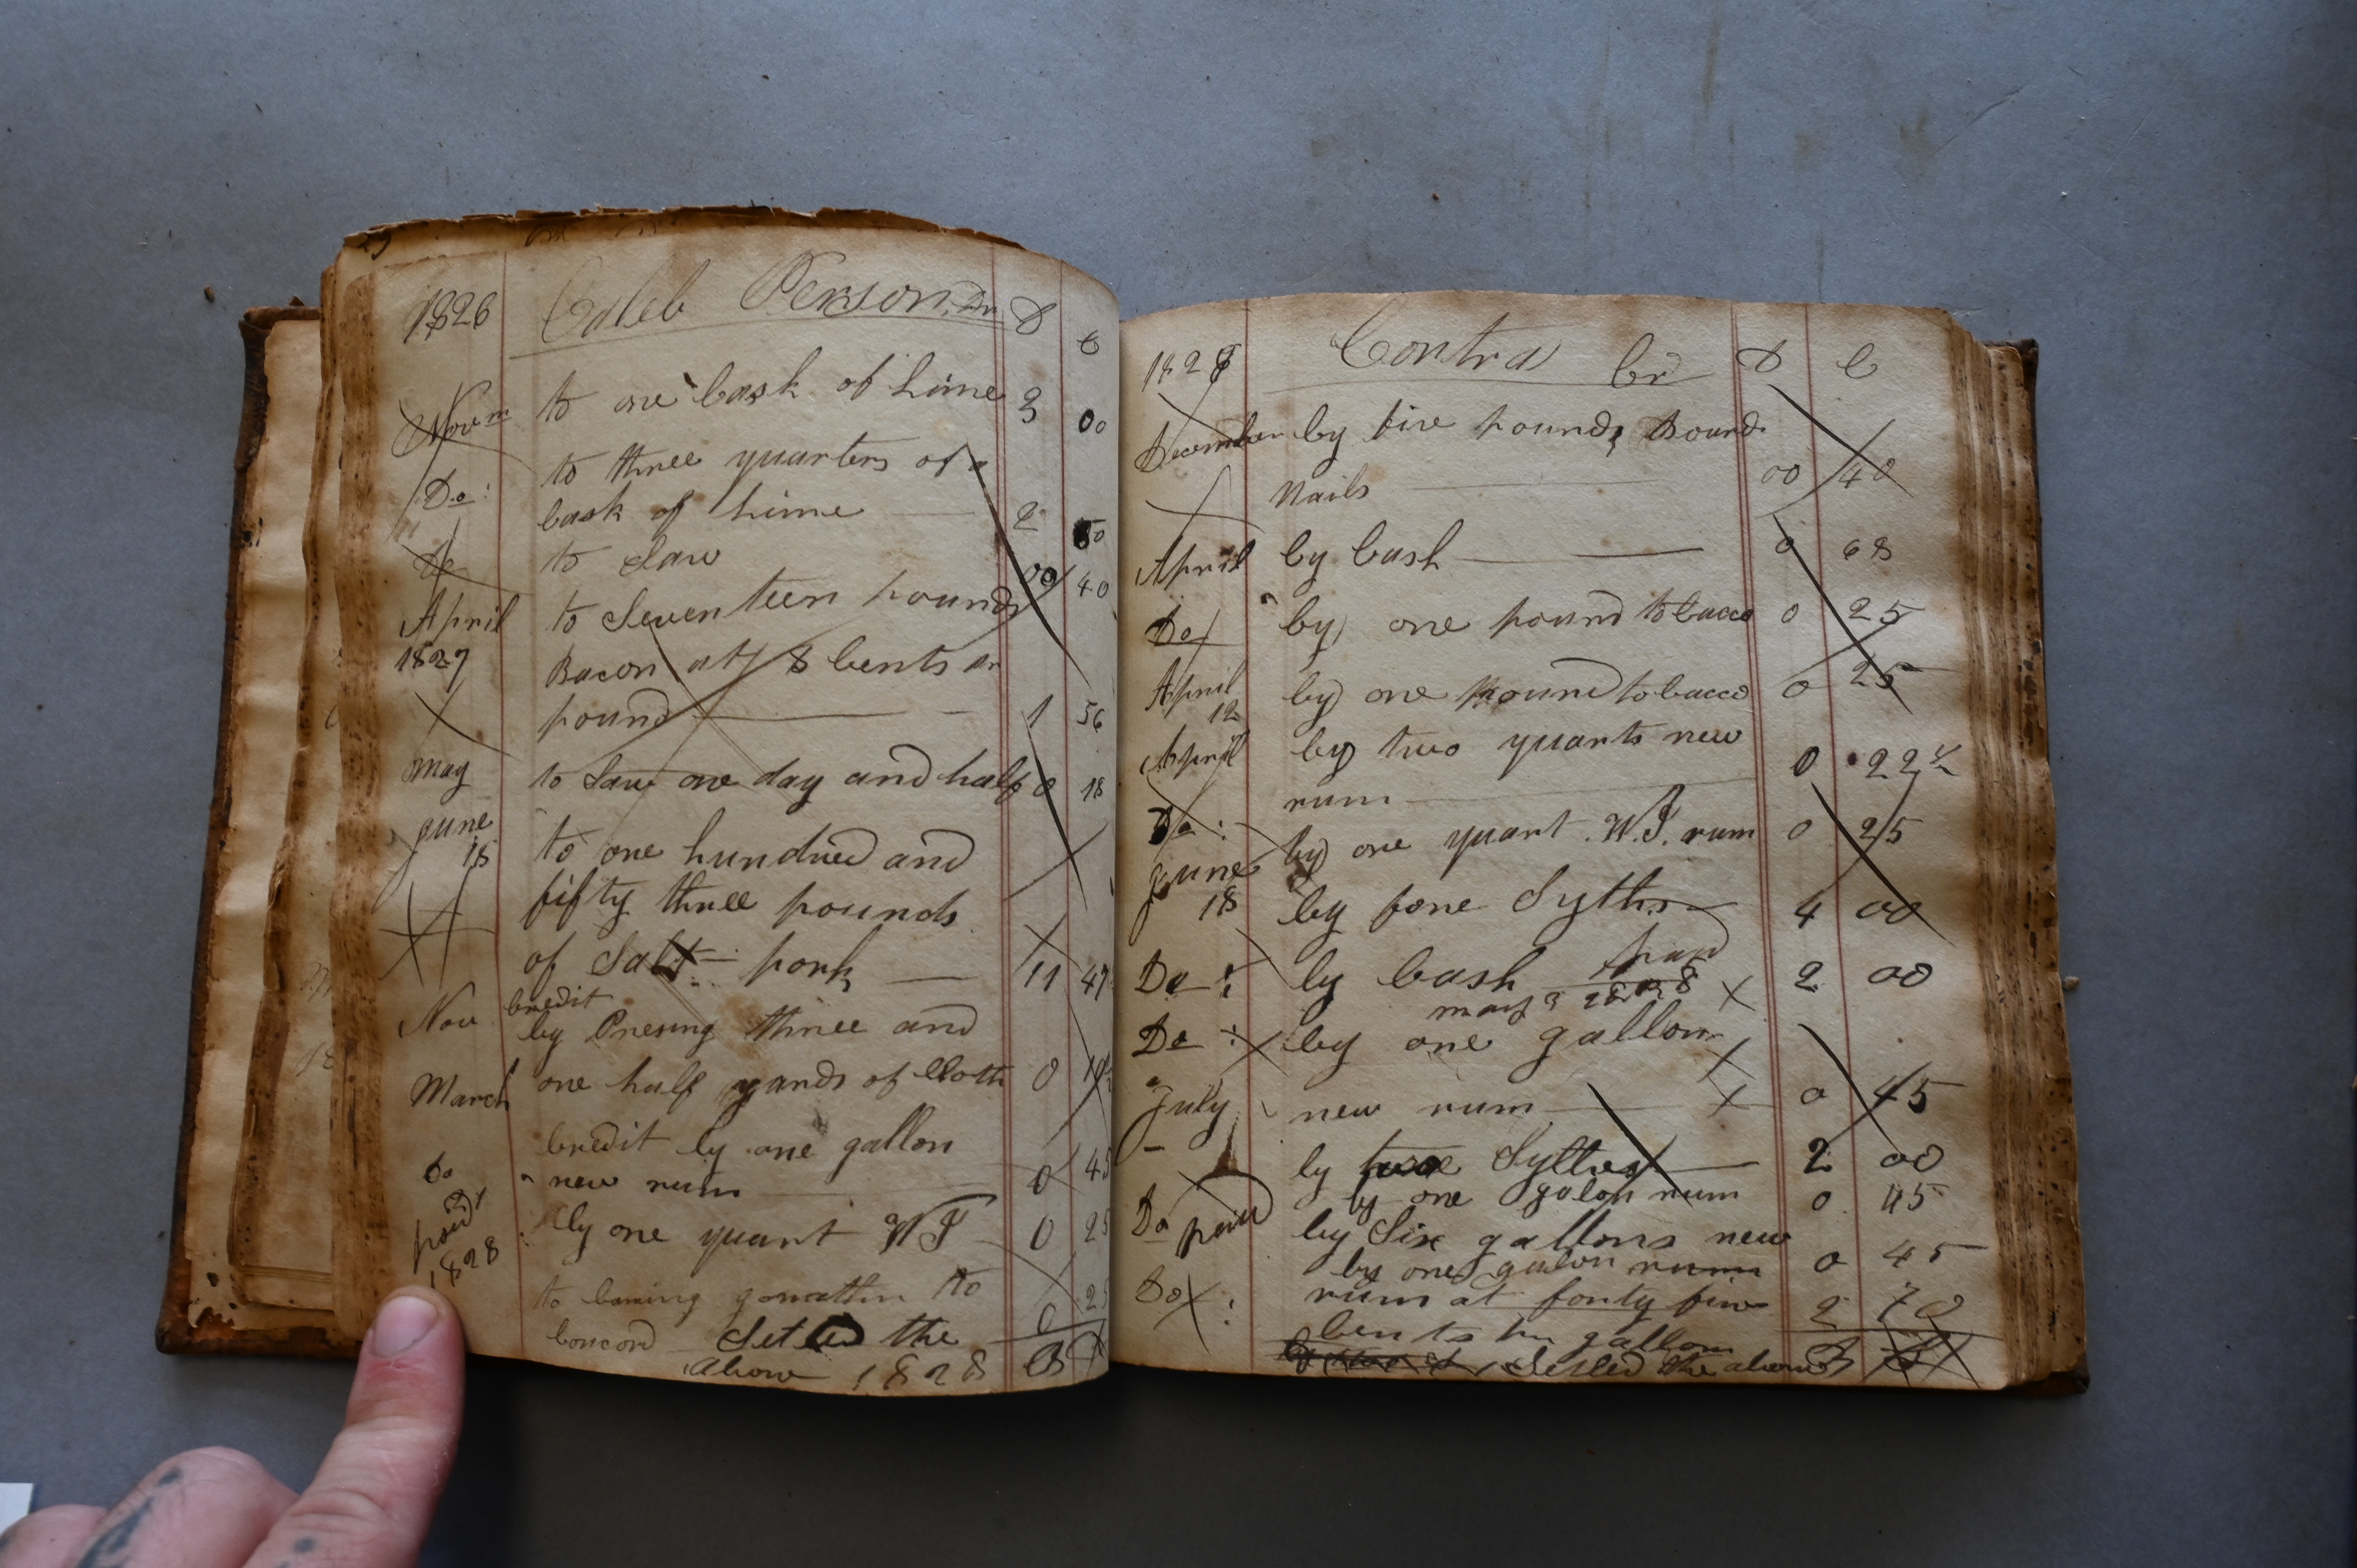 1826 Caleb Person Dr D C
Novm to one Cask of Lime 3 00
Do: to three quarters of a
Cask of Lime 2 50
Do to Saw 00 40
April to Seventeen pounds
1827 Bacon at 8 Cents
pound 1 56
May to Saw one day and half 0 18
June to one hundred and
18 fifty three pounds
of Salt pork 11 47
Nov Credit
by Presing three and
March one half yards of Cloth 0
Credit by one gallon
Do new rum 0 45
paid by one quart W I 0 25
1828
to to 0 25
Concord Setled the
above 1828
1827 Contra Cr D C
December by five pounds Board
Nails 00 40
April by Cash 0 68
Do by one pound tobacco 0 25
April by one pound tobacco 0 25
12
April by two quarts new
rum 0 22
Do: by one quart W.I. rum 0 25
June
18 by fore Syths 4 00
Do: by Cash paid 2 00
may 1828
Do: by one gallon
July new rum 0 45
by Sythes 2 00
by one galon rum 0 45
Do paid by Six gallons new
by one galon rum 0 45
Do: rum at forty five 2 70
Cents gallon
Setled the above